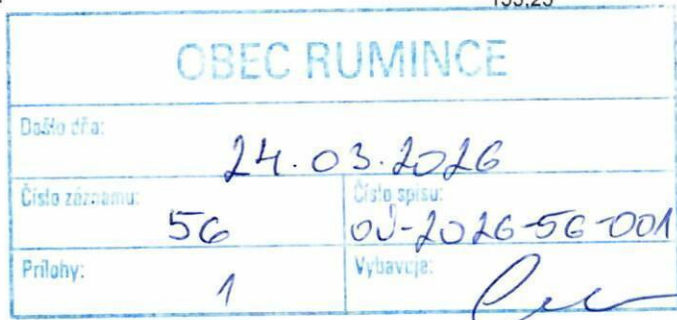 OBEC RUMINCE
Došlo dňa:
24.03.2026
Číslo záznamu:
56
Číslo spisu:
OÚ-2026-56-001
Prílohy:
1
Vybavuje: